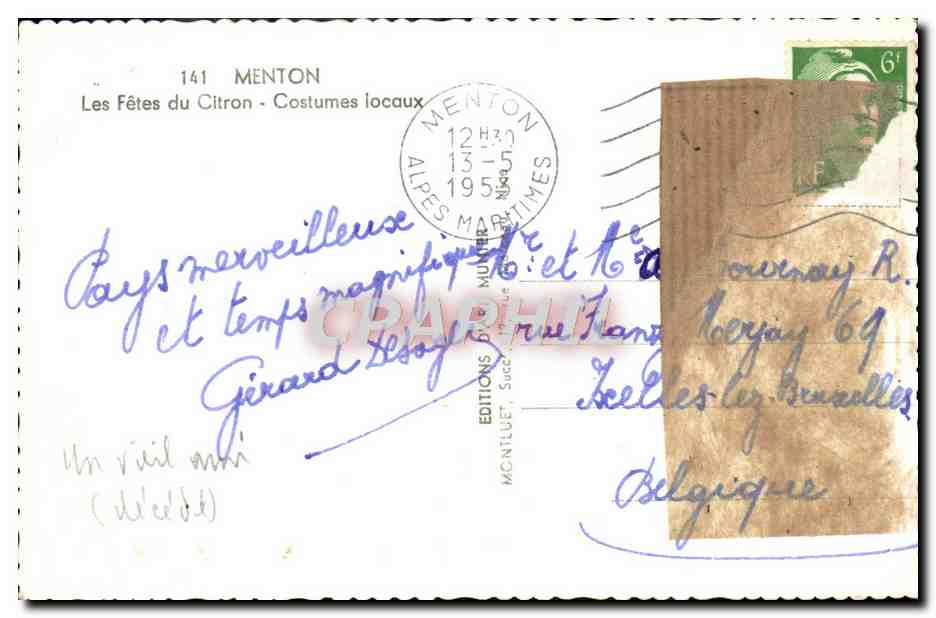 141 MENTON
Les Fêtes du Citron - Costumes locaux
MENTON
12 H 30
13 - 5
195
ALPES MARITIMES
6f
RF
Pays merveilleux
et temps magnifique
Gérard
Mr. et Me
Tournay R.
rue Franz Merjay 69
Ixelles-lez-Bruxelles
Belgique
un vieil ami
(décédé)
EDITIONS D'ART MUNIER
MONTLUET, Succ
Nice
CPAPHIL